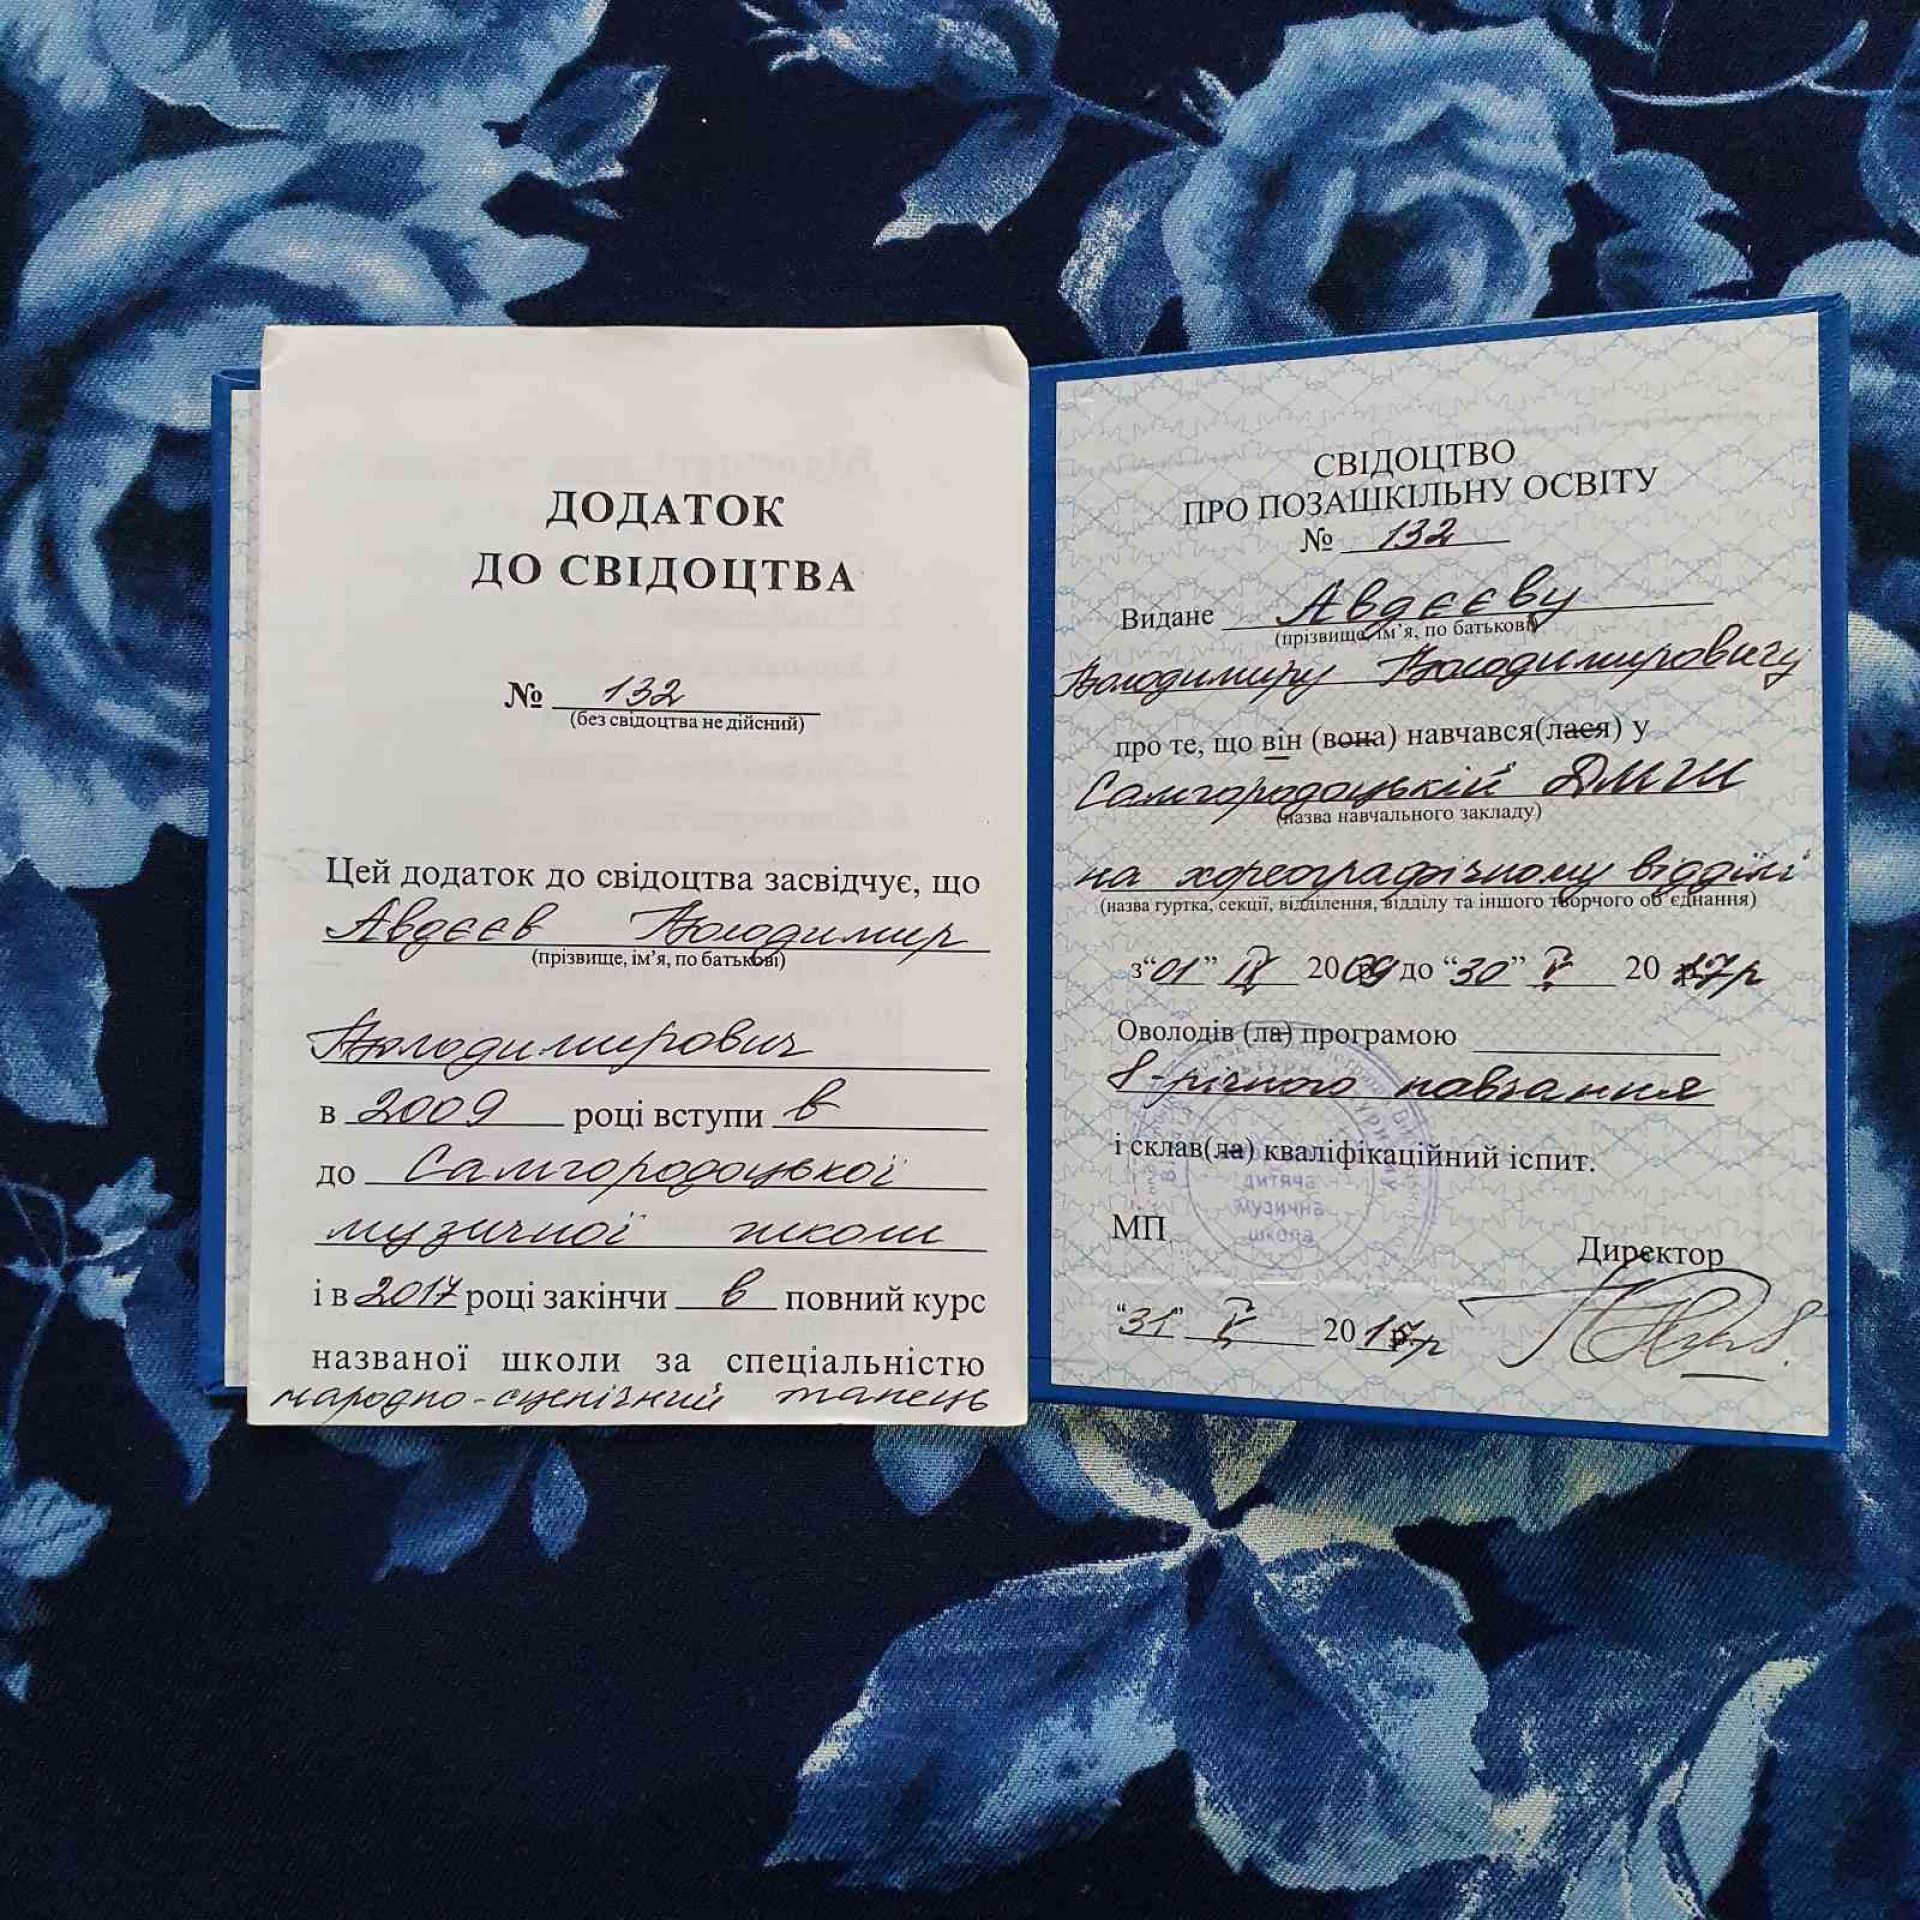 ДОДАТОК
ДО СВІДОЦТВА
№ 132
(без свідоцтва не дійсний)
Цей додаток до свідоцтва засвідчує, що
Авдєєв Володимир
(прізвище, ім’я, по батькові)
Володимирович
в 2009 році вступи в
до Самгородоцької
музичної школи
і в 2017 році закінчи в повний курс
названої школи за спеціальністю
народно-сценічний танець
СВІДОЦТВО
ПРО ПОЗАШКІЛЬНУ ОСВІТУ
№ 132
Видане Авдєєву
(прізвище, ім’я, по батькові)
Володимиру Володимировичу
про те, що він (вона) навчався(лася) у
Самгородоцькій ДМШ
(назва навчального закладу)
на хореографічному відділі
(назва гуртка, секції, відділення, відділу та іншого творчого об’єднання)
з “01” IX 2009 до “30” V 2017р
Оволодів (ла) програмою
8-річного навчання
і склав(ла) кваліфікаційний іспит.
дитяча
музична
школа
МП
Директор
“31” V 2017р